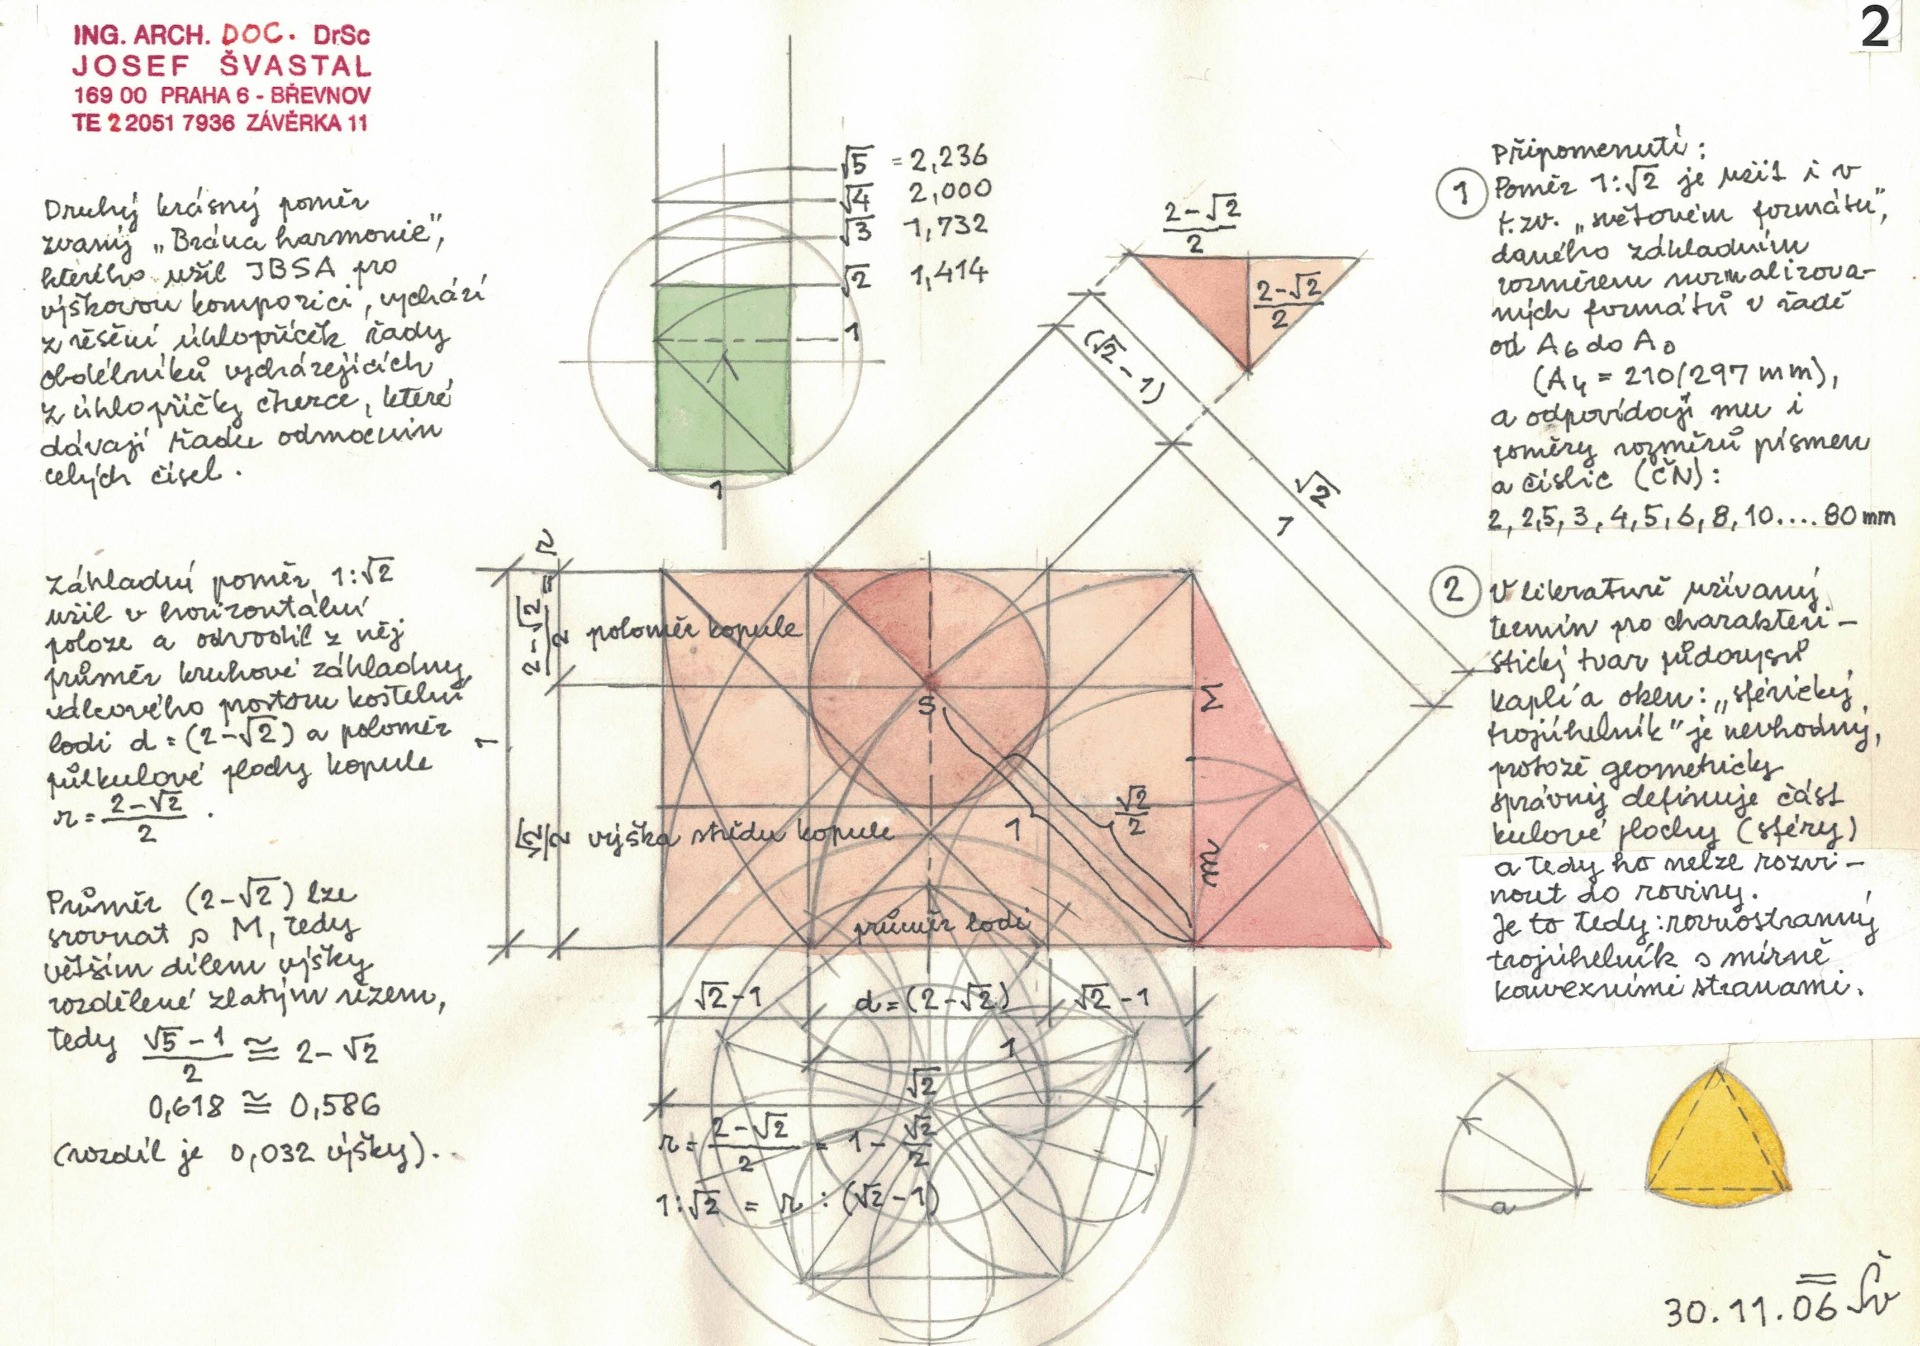 2
ING. ARCH. DOC. DrSc
JOSEF ŠVASTAL
169 00 PRAHA 6 - BŘEVNOV
TE 2 2051 7936 ZÁVĚRKA 11
Druhý krásný poměr
zvaný „Brána harmonie",
kterého užil JBSA pro
výškovou kompozici, vychází
z řešení úhlopříček řady
obdélníků vycházejících
z úhlopříčky čtverce, které
dávají řadu odmocnin
celých čísel.
Základní poměr 1:√2
užil v horizontální
poloze a odvodil z něj
průměr kruhové základny
válcového prostoru kostelní
lodi d = (2-√2) a poloměr
půlkulové plochy kopule
r = (2-√2)/2 .
Průměr (2-√2) lze
srovnat s M, tedy
větším dílem výšky
rozdělené zlatým řezem,
tedy (√5-1)/2 ≅ 2-√2
0,618 ≅ 0,586
(rozdíl je 0,032 výšky).
√5 = 2,236
√4 2,000
√3 1,732
√2 1,414
1
1
(2-√2)/2
(2-√2)/2
(√2-1)
√2
1
(2-√2)/2 = r
poloměr kopule
S
M
1
√2/2
výška středu kopule
1
√2/2
m
průměr lodi
√2-1
d=(2-√2)
√2-1
1
√2
r = (2-√2)/2 = 1 - √2/2
1:√2 = r : (√2-1)
Připomenutí:
1 Poměr 1:√2 je užit i v
t.zv. „světovém formátu",
daného základním
rozměrem normalizova-
ných formátů v řadě
od A6 do A0
(A4 = 210/297 mm),
a odpovídají mu i
poměry rozměrů písmen
a číslic (ČN):
2, 2,5, 3, 4, 5, 6, 8, 10.... 80 mm
2 V literatuře užívaný
termín pro charakteri-
stický tvar půdorysů
kaplí a oken: „sférický
trojúhelník" je nevhodný,
protože geometricky
správný definuje část
kulové plochy (sféry)
a tedy ho nelze rozvi-
nout do roviny.
Je to tedy: rovnostranný
trojúhelník s mírně
konvexními stranami.
a
30.11.06 Šv